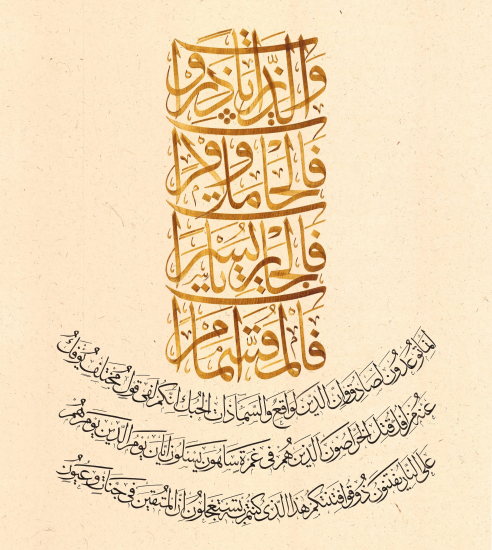 والذاريات ذروا
فالحاملات وقرا
فالجاريات يسرا
فالمقسمات أمرا
إنما توعدون لصادق وإن الدين لواقع والسماء ذات الحبك إنكم لفي قول مختلف يؤفك
عنه من أفك قتل الخراصون الذين هم في غمرة ساهون يسألون أيان يوم الدين يوم هم
على النار يفتنون ذوقوا فتنتكم هذا الذي كنتم به تستعجلون إن المتقين في جنات وعيون